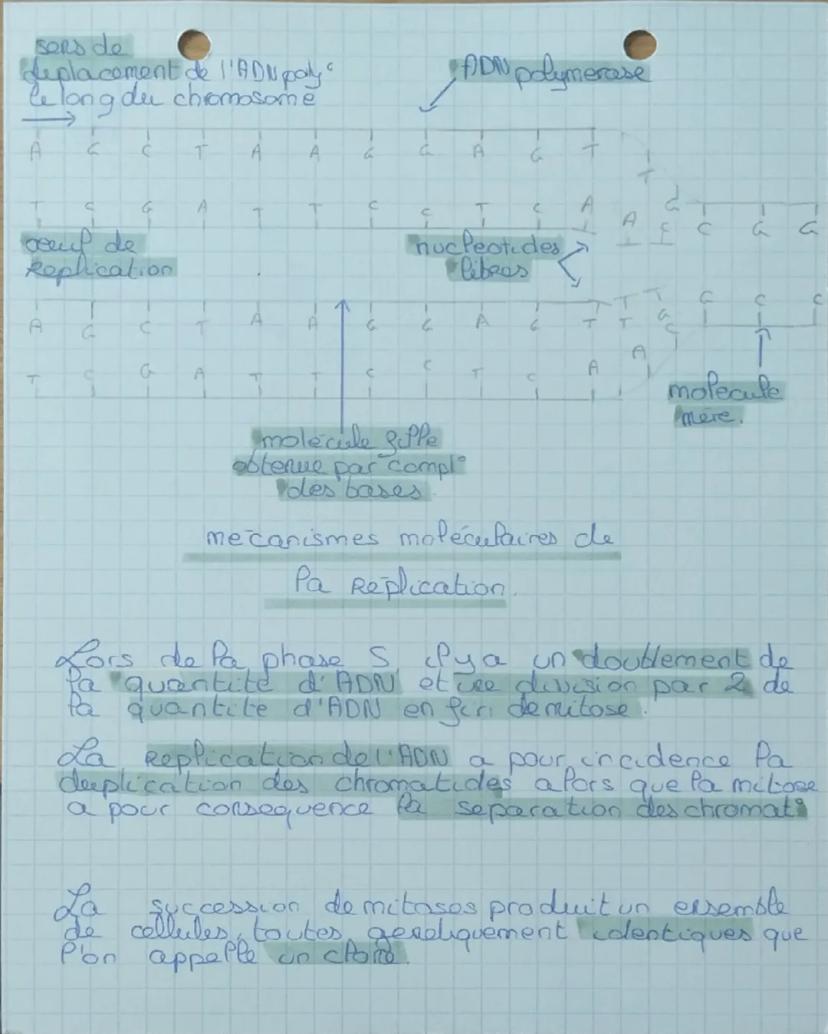 sens de
deplacement de l'ADN poly^c
le long du chromosome
ADN polymerase
A G C T A A G G A G T T
T C G A T T C C T C A A C G C G G
oeuf de
Replication
nucleotides
libres
A G C T A A G G A G T T T T G G C C
T C G A T T C C T C A A C
molecule
mère.
molécule fille
obtenue par compl^e
des bases.
mecanismes moléculaires de
la Replication.
Lors de la phase S il y a un doublement de
la quantité d'ADN et une division par 2 de
la quantite d'ADN en fin de mitose.
La Replication de l'ADN a pour incidence la
duplication des chromatides alors que la mitose
a pour consequence la separation des chromat^s
La succession de mitoses produit un ensemble
de cellules, toutes genetiquement identiques que
l'on appelle un clone.